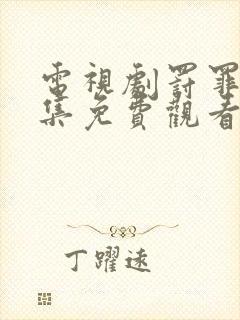 電視劇罰罪
集免費觀看
丁躍遠